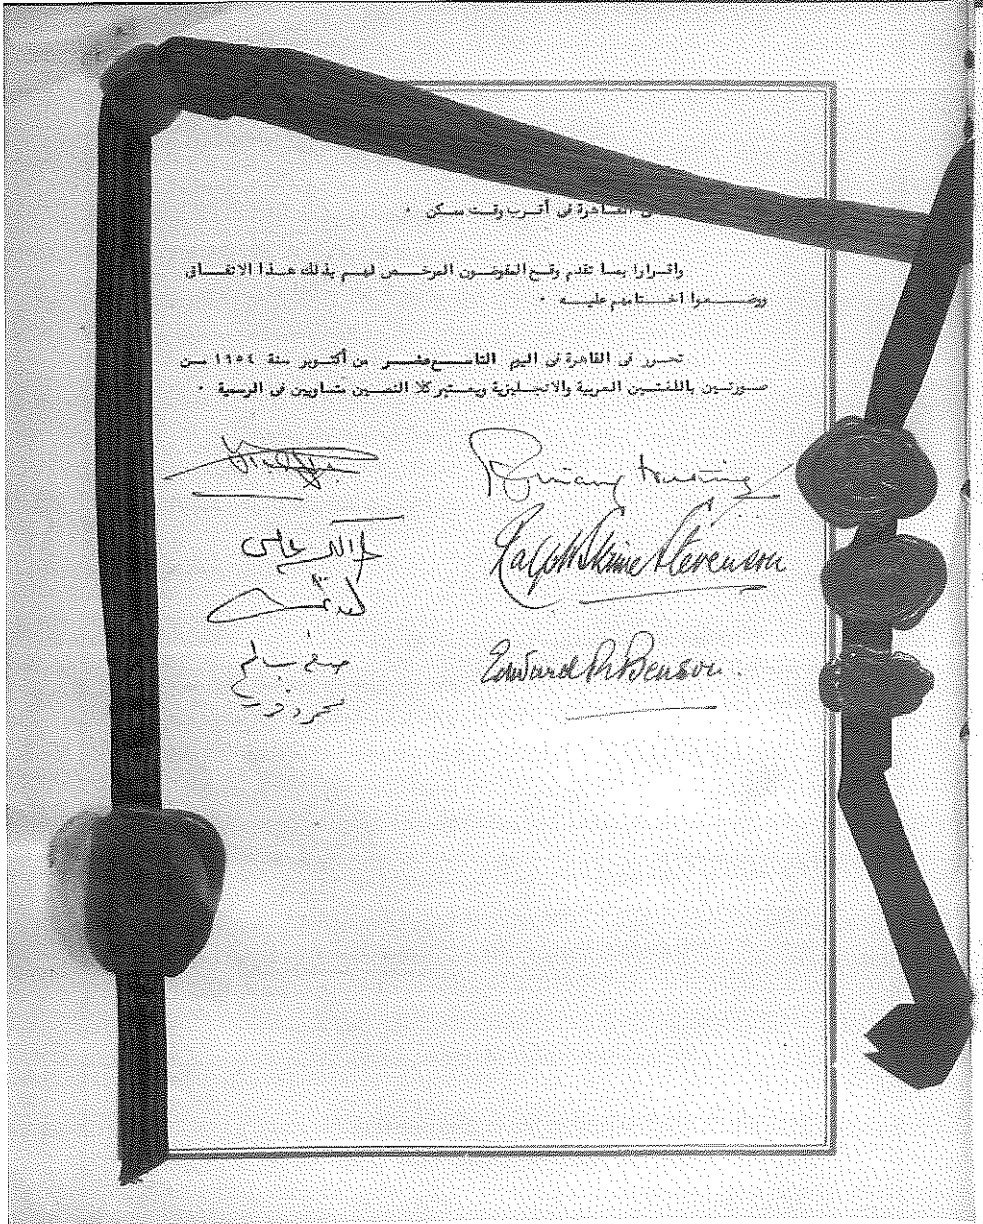 القاهرة فى أقرب وقت ممكن ٠
واقرارا بما تقدم وقع المفوضون المرخص لهم بذلك هذا الاتفاق
ووضعوا اختامهم عليه ٠
تحرر فى القاهرة فى اليوم التاسع عشر من أكتوبر سنة ١٩٥٤ من
صورتين باللغتين العربية والانجليزية ويعتبر كلا النصين متساويين فى الرسمية ٠
Ralph Skrine Stevenson
Edward R Benson.
صلاح سالم
محمود فوزى